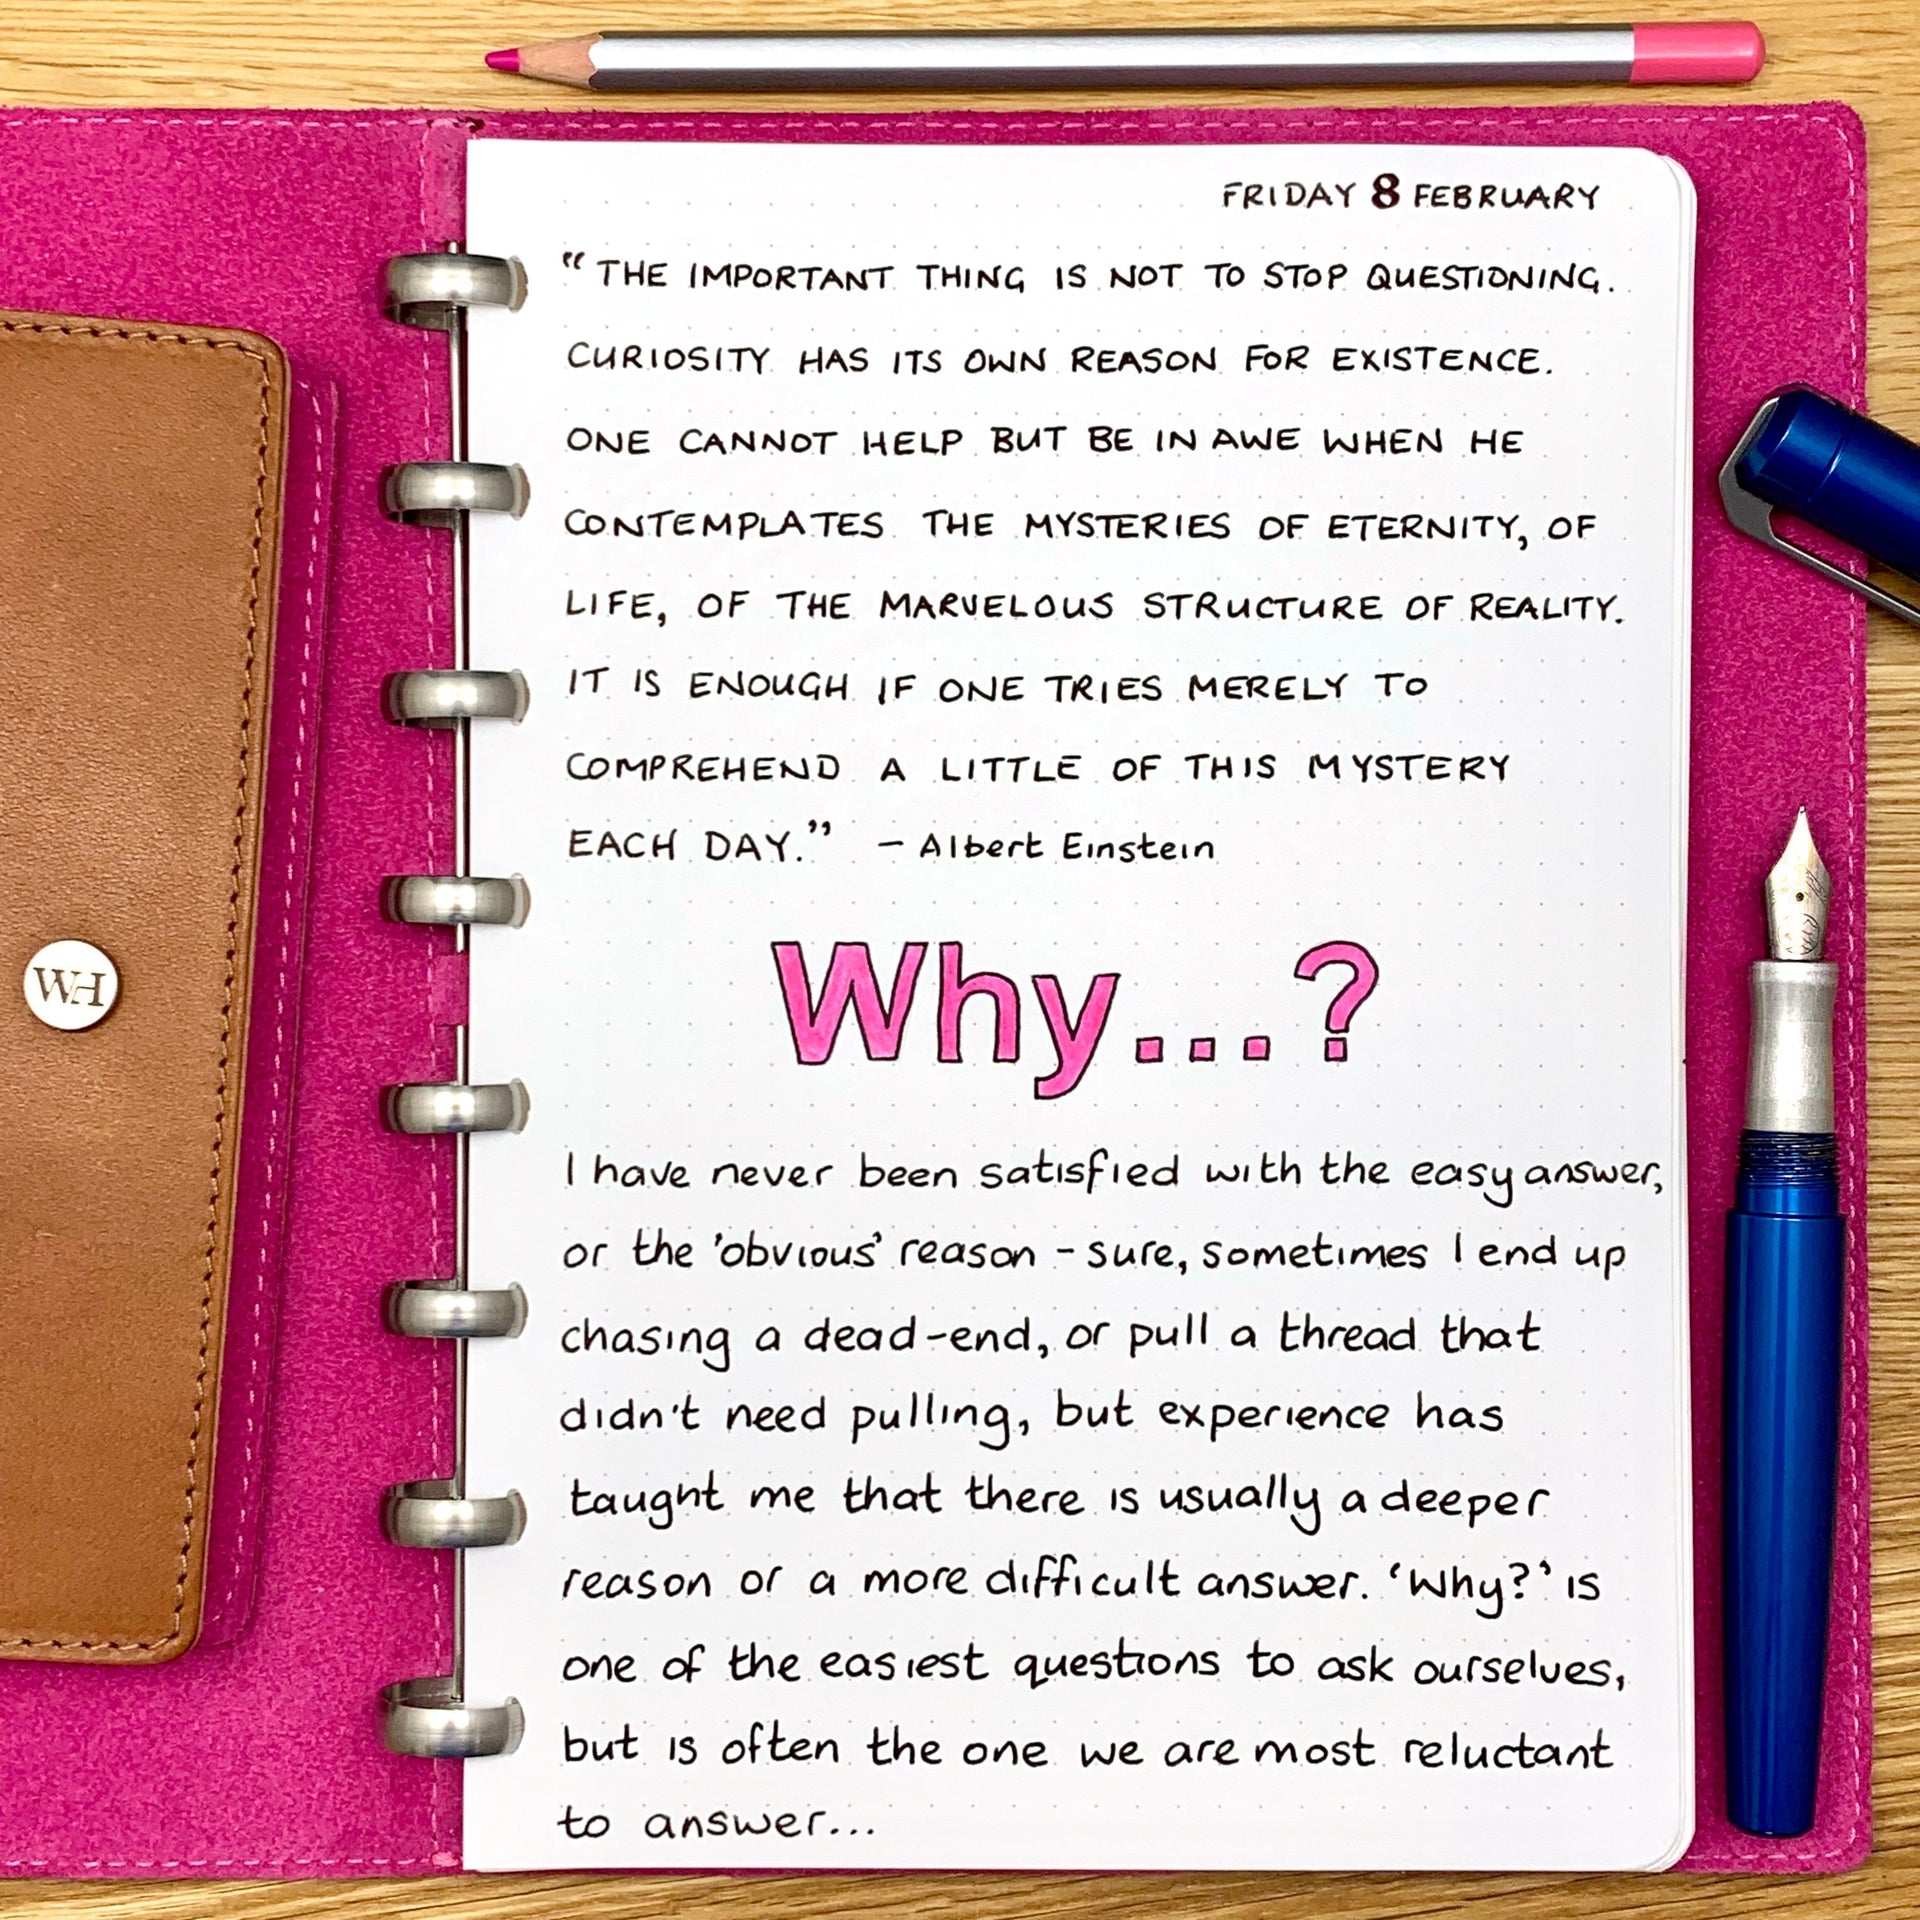 FRIDAY 8 FEBRUARY
“THE IMPORTANT THING IS NOT TO STOP QUESTIONING.
CURIOSITY HAS ITS OWN REASON FOR EXISTENCE.
ONE CANNOT HELP BUT BE IN AWE WHEN HE
CONTEMPLATES THE MYSTERIES OF ETERNITY, OF
LIFE, OF THE MARVELOUS STRUCTURE OF REALITY.
IT IS ENOUGH IF ONE TRIES MERELY TO
COMPREHEND A LITTLE OF THIS MYSTERY
EACH DAY.” – Albert Einstein
Why...?
I have never been satisfied with the easy answer,
or the 'obvious' reason – sure, sometimes I end up
chasing a dead-end, or pull a thread that
didn't need pulling, but experience has
taught me that there is usually a deeper
reason or a more difficult answer. ‘Why?’ is
one of the easiest questions to ask ourselves,
but is often the one we are most reluctant
to answer...
WH